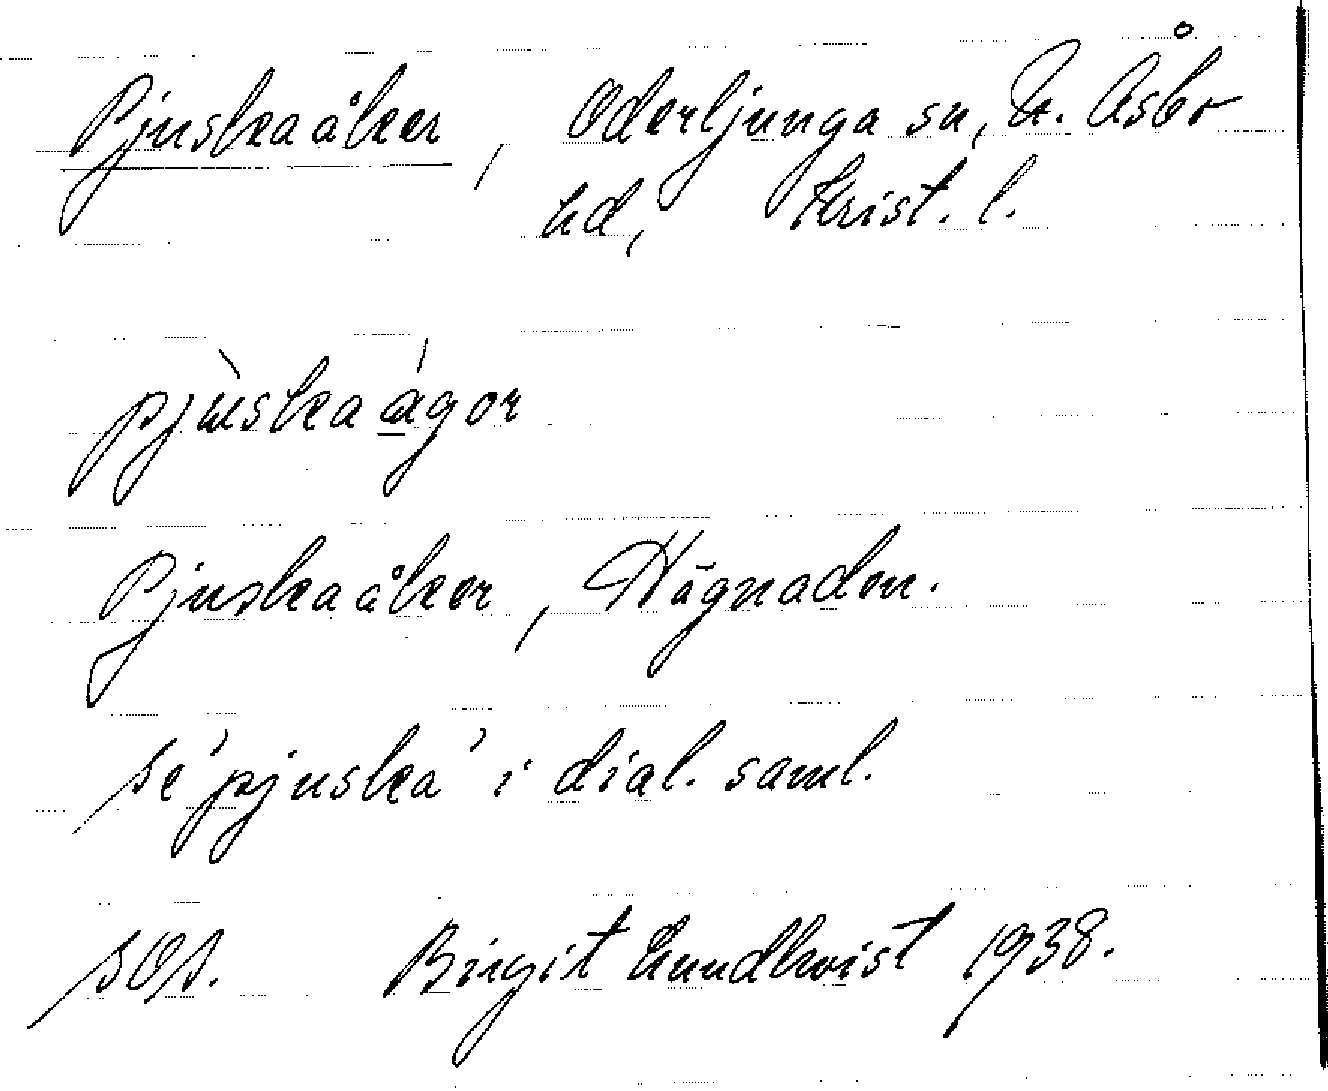 Pjuskaåker, Oderljunga sn, N. Åsbo
hd, Krist. l.
pjùskaágor
Pjuskaåker, Hägnaden.
se 'pjuska' i dial. saml.
sOs. Birgit Lundkvist 1938.